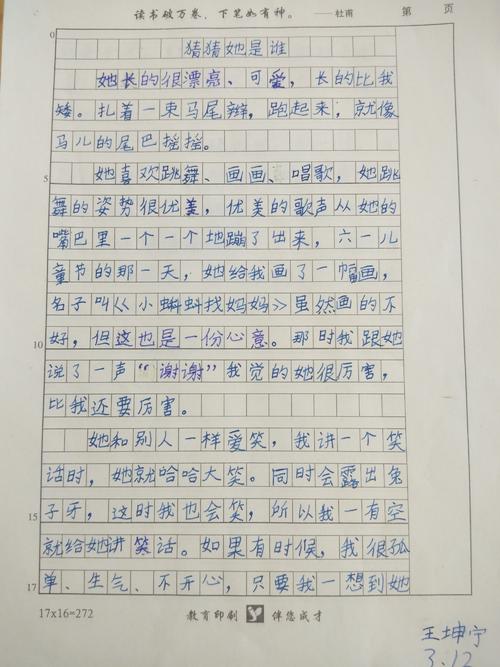 读书破万卷，下笔如有神。 ——杜甫 第 页
0
猜猜她是谁
她长的很漂亮、可爱，长的比我
矮。扎着一束马尾辫，跑起来；就像
马儿的尾巴摇摇。
5 她喜欢跳舞、画画、唱歌，她跳
舞的姿势很优美，优美的歌声从她的
嘴巴里一个一个地蹦了出来，六一儿
童节的那一天，她给我画了一幅画，
名子叫《小蝌蚪找妈妈》虽然画的不
10 好，但这也是一份心意。那时我跟她
说了一声“谢谢”我觉的她很厉害，
比我还要厉害。
她和别人一样爱笑，我讲一个笑
话时，她就哈哈大笑。同时会露出兔
15 子牙，这时我也会笑，所以我一有空
就给她讲笑话。如果有时候，我很孤
17 单、生气、不开心，只要我一想到她
17x16=272 教育印刷 伴您成才
王坤宁
3.12